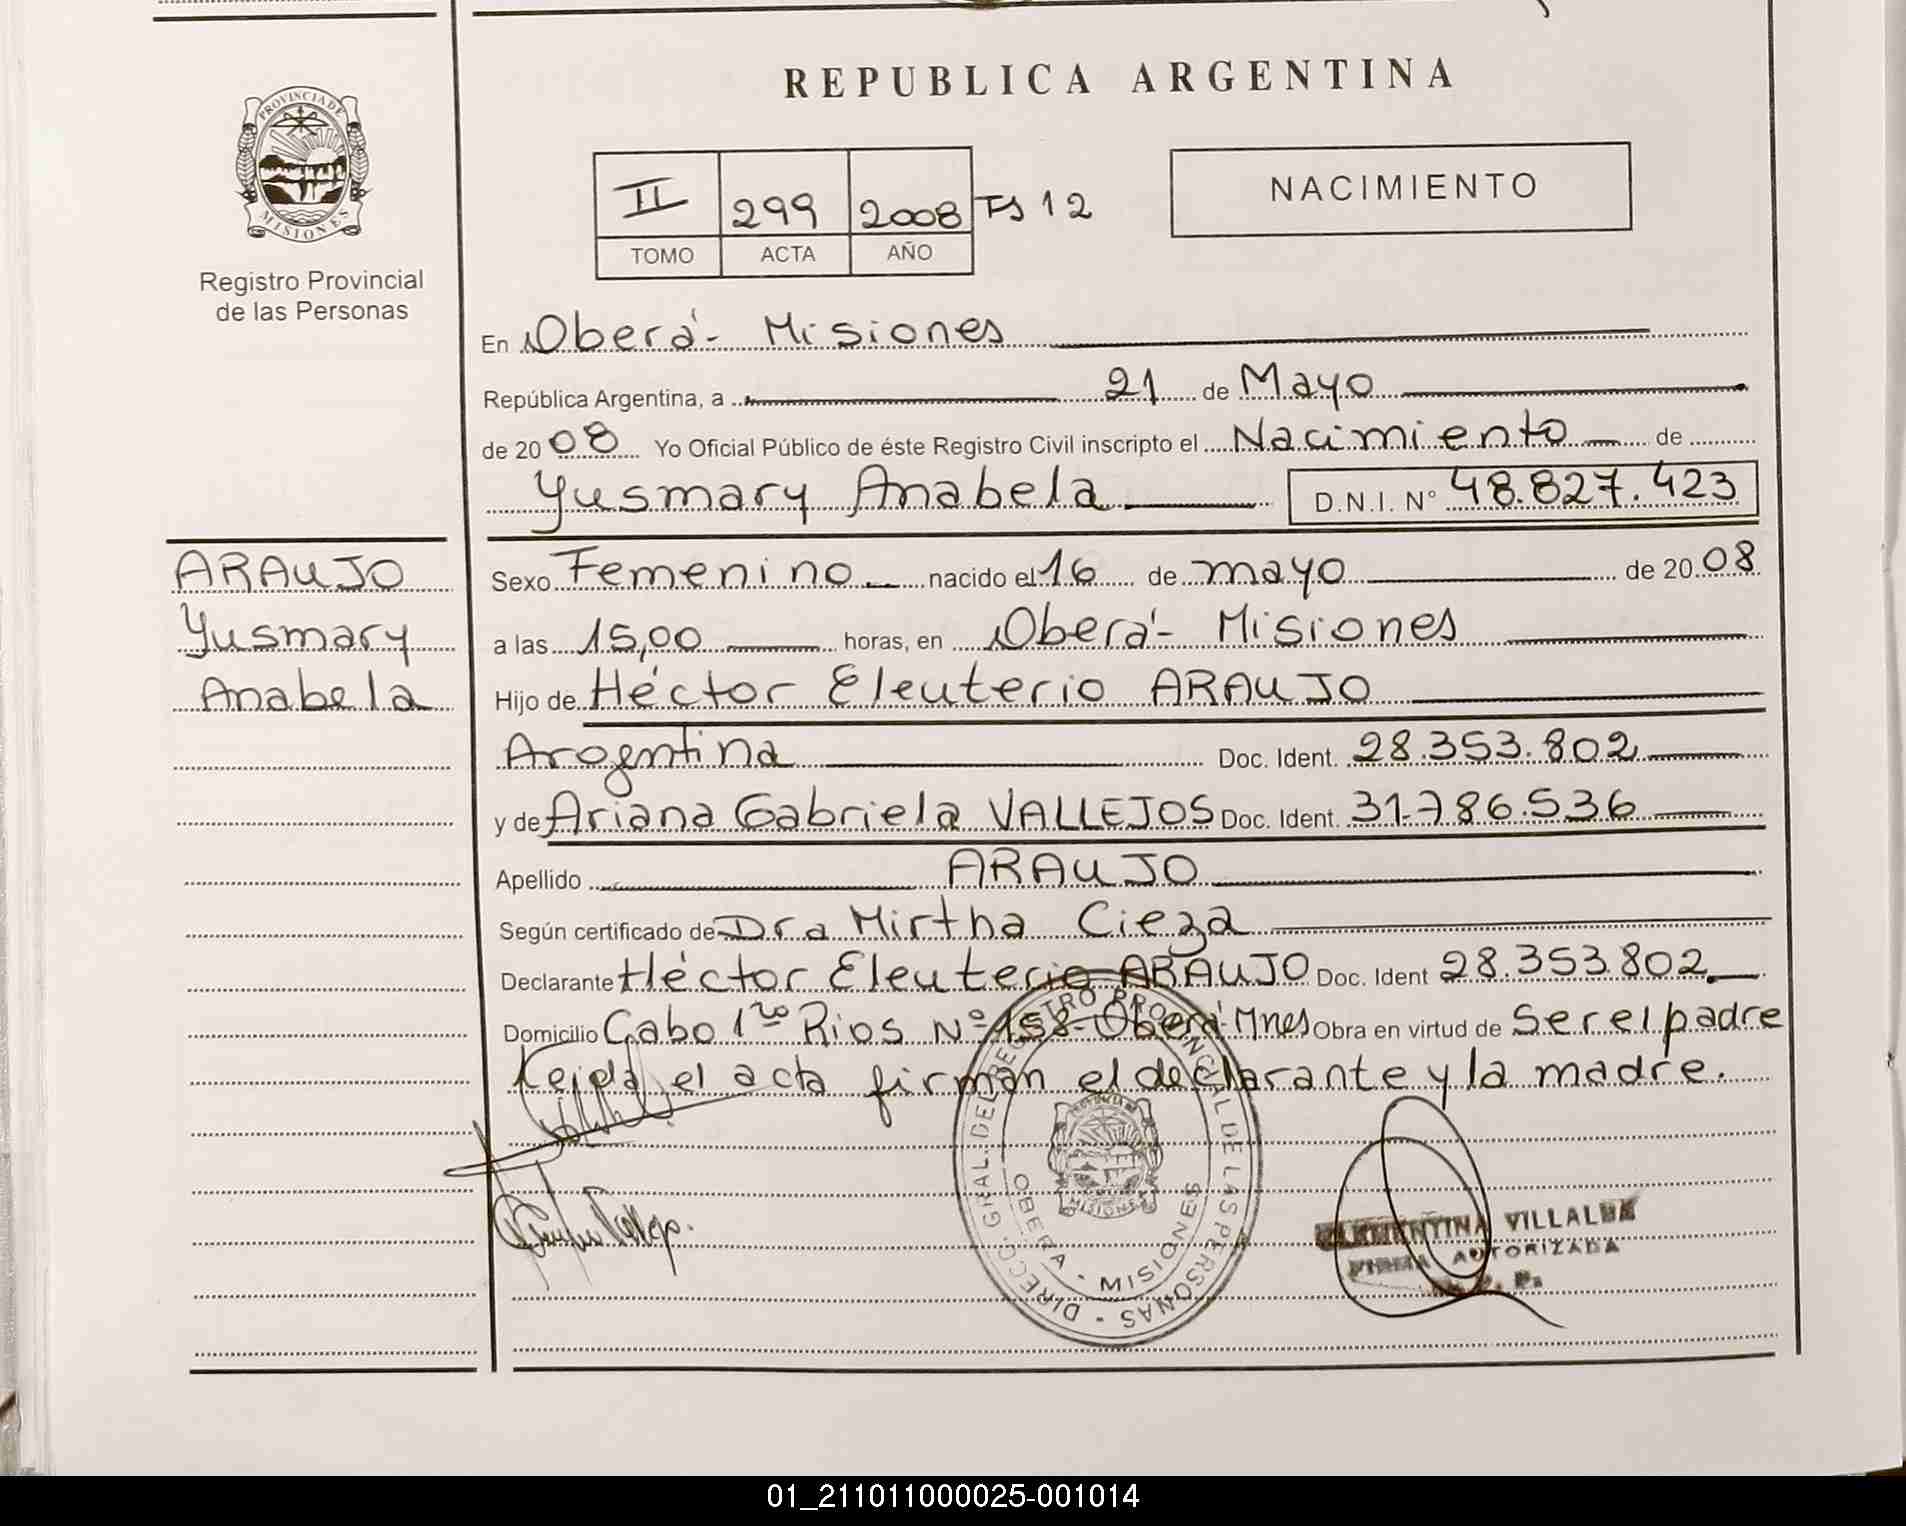 REPUBLICA ARGENTINA
PROVINCIA DE MISIONES
Registro Provincial
de las Personas
II 299 2008 Fs 12
TOMO ACTA AÑO
NACIMIENTO
En Oberá - Misiones
República Argentina, a 21 de Mayo
de 2008 Yo Oficial Público de éste Registro Civil inscripto el Nacimiento de
Yusmary Anabela D.N.I. N° 48.827.423
ARAUJO
Yusmary
Anabela
Sexo Femenino nacido el 16 de mayo de 2008
a las 15,00 horas, en Oberá - Misiones
Hijo de Héctor Eleuterio ARAUJO
Arogentina Doc. Ident. 28.353.802
y de Ariana Gabriela VALLEJOS Doc. Ident. 31.786.536
Apellido ARAUJO
Según certificado de Dra Mirtha Cieza
Declarante Héctor Eleuterio ARAUJO Doc. Ident 28.353.802
Domicilio Cabo 1ro Rios N° 158 - Oberá - Mnes Obra en virtud de Ser el padre
Leida el acta firman el declarante y la madre.
DIRECC. GRAL. DEL REGISTRO PROVINCIAL DE LAS PERSONAS
PROVINCIA DE MISIONES
OBERA - MISIONES
VILLALBA
FIRMA AUTORIZADA
01_211011000025-001014